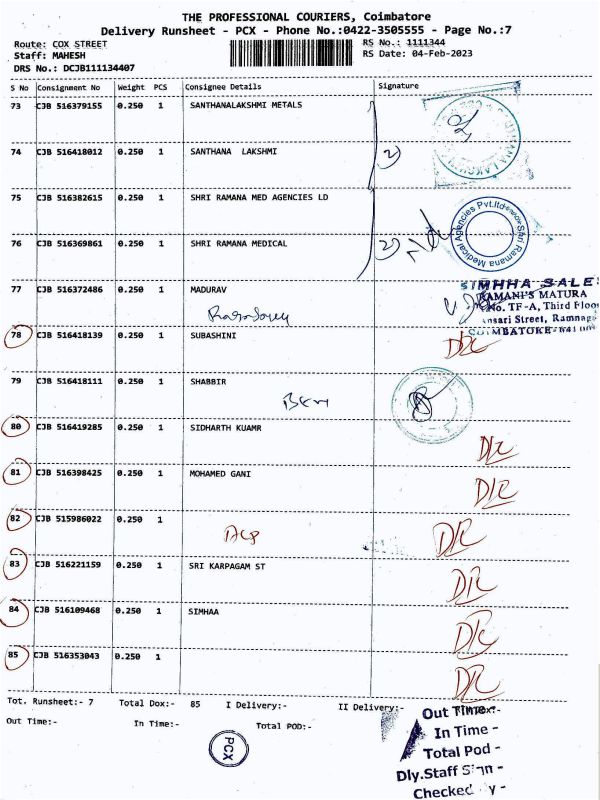 THE PROFESSIONAL COURIERS, Coimbatore
Delivery Runsheet - PCX - Phone No.:0422-3505555 - Page No.:7
Route: COX STREET RS No.: 1111344
Staff: MAHESH RS Date: 04-Feb-2023
DRS No.: DCJB111134407
S No Consignment No Weight PCS Consignee Details Signature
73 CJB 516379155 0.250 1 SANTHANALAKSHMI METALS
74 CJB 516418012 0.250 1 SANTHANA LAKSHMI 2)
75 CJB 516382615 0.250 1 SHRI RAMANA MED AGENCIES LD
Sri Ramana Medical Agencies Pvt.ltd
76 CJB 516369861 0.250 1 SHRI RAMANA MEDICAL 2)
77 CJB 516372486 0.250 1 MADURAV
SIMHHA SALES
RAMANI'S MATURA
No. TF-A, Third Floor
Ansari Street, Ramnag
COIMBATORE-641009
78 CJB 516418139 0.250 1 SUBASHINI D/C
79 CJB 516418111 0.250 1 SHABBIR
80 CJB 516419285 0.250 1 SIDHARTH KUAMR D/C
81 CJB 516398425 0.250 1 MOHAMED GANI D/C
82 CJB 515986022 0.250 1 D/C
83 CJB 516221159 0.250 1 SRI KARPAGAM ST D/C
84 CJB 516109468 0.250 1 SIMHAA D/C
85 CJB 516353043 0.250 1 D/C
Tot. Runsheet:- 7 Total Dox:- 85 I Delivery:- II Delivery:-
Out Time:- In Time:- Total POD:-
PCX
Out Time -
In Time -
Total Pod -
Dly.Staff Sign -
Checked By -